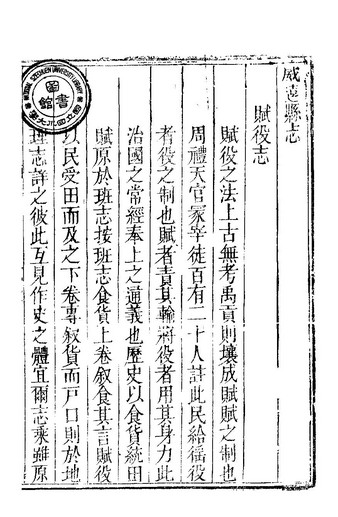 威遠縣志
賦役志
賦役之法上古無考禹貢則壤成賦賦之制也
周禮天官冢宰徒百有二十人註此民給徭役
者役之制也賦者責其輸將役者用其身力此
治國之常經奉上之通義也歷史以食貨統田
賦原於班志按班志食貨上卷叙食其言賦役
以民受田而及之下卷專叙貨而戸口則於地
理志詳之彼此互見作史之體宜爾志乘雖原
圖
書
館